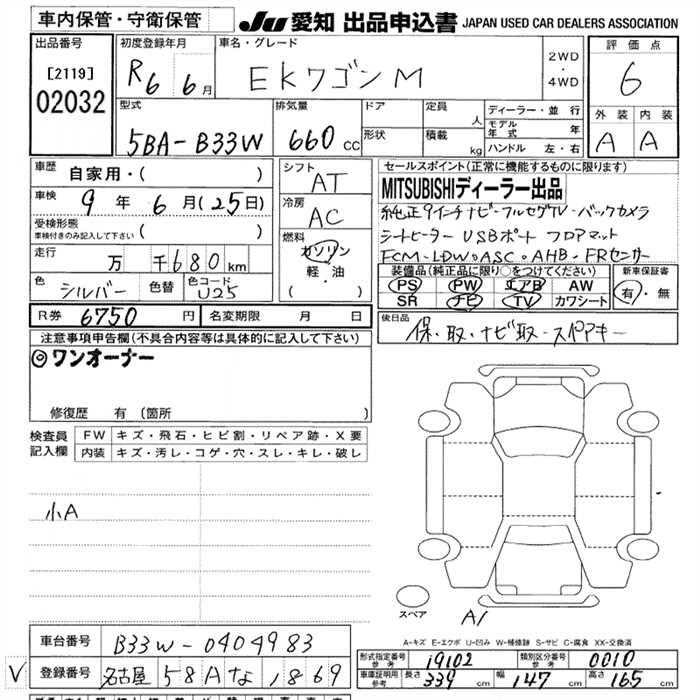 車内保管・守衛保管
JU 愛知 出品申込書 JAPAN USED CAR DEALERS ASSOCIATION
出品番号
[2119]
02032
初度登録年月
R6 6月
車名・グレード
EKワゴンM
2WD
・
4WD
評価点
6
外装 内装
A A
型式
5BA-B33W
排気量
660 cc
ドア
形状
定員 人
積載 kg
ディーラー・並行
モデル年式 年
ハンドル 左・右
車歴
自家用・( )
車検
9年6月(25日)
受検形態
車検付きのみ記入して下さい ( )
走行
万 千680km
色
シルバー
色替
色コード
U25
シフト
AT
冷房
AC
燃料
ガソリン
軽・油
( )
セールスポイント(正常に機能するものに限ります)
MITSUBISHIディーラー出品
純正9インチナビ-フルセグTV-バックカメラ
シートヒーター USBポート フロアマット
FCM-LDW。ASC。AHB-FRセンサー
装備品(純正品に限り○をつけてください)
PS PW エアB AW
SR ナビ TV カワシート
新車保証書
有・無
R券 6750円 名変期限 月 日
後日品
保・取・ナビ取-スペアキー
注意事項申告欄(不具合内容等は具体的に記入して下さい)
◎ワンオーナー
修復歴 有(箇所 )
検査員記入欄
FW キズ・飛石・ヒビ割・リペア跡・X要
内装 キズ・汚レ・コゲ・穴・スレ・キレ・破レ
小A
スペア
A1
A-キズ E-エクボ U-凹み W-補修跡 S-サビ C-腐食 XX-交換済
車台番号 B33W-0404983
V 登録番号 名古屋 58A な 1869
形式指定番号 参考 19102 類別区分番号 参考 0010
車庫証明用 参考 長さ 339cm 幅 147cm 高さ 165cm